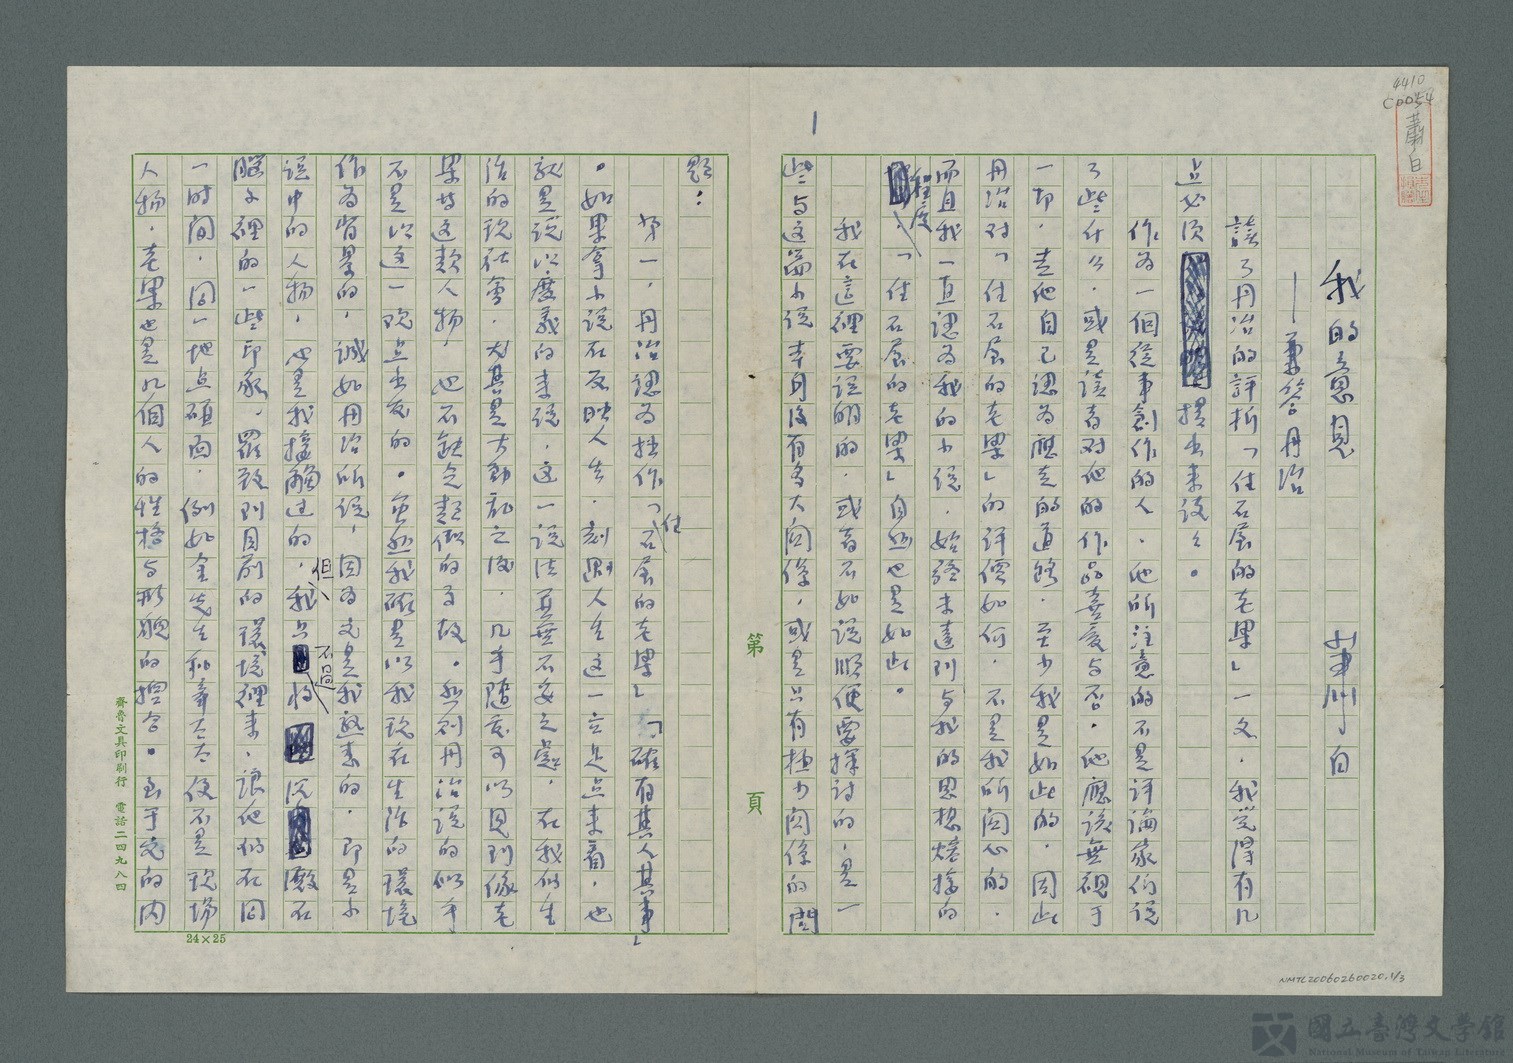 4410
C0054
蕭白
1
我的意見 蕭白
——兼答丹冶
讀了丹冶的評析「住石屋的老畢」一文，我覺得有几
点必須提出来談談。
作為一個從事創作的人，他所注意的不是評論家們說
了些什么，或是讀者对他的作品喜愛与否，他應該無視于
一切，走他自己認為應走的道路，至少我是如此的，因此
丹冶对「住石屋的老畢」的評價如何，不是我所関心的，
而且我一直認為我的小說，始終未達到与我的思想 的
程度，「住石屋的老畢」自然也是如此。
我在這裡要說明的，或者不如說順便要探討的，是一
些与这篇小说本身没有多大関係，或是只有極少関係的問
題：
第一，丹冶認為拙作「住石屋的老畢」「確有其人其事」
。如果拿小说在反映人生，刻劃人生這一立足点来看，也
就是說以廣義的来説，这一説法真無不妥之處，在我們生
活的現社會，尤其是大動亂之後，几乎隨處可以見到像老
畢甘这類人物，也不缺乏類似的事故。然則丹冶説的似乎
不是以这一观点出发的。虽然我確是以我現在生活的環境
作為背景的，誠如丹冶所説，因為它是我熟悉的，即是小
说中的人物，也是我接觸过的，但我只不過将 沉 殿在
腦子裡的一些印象，羅致到目前的環境裡来，讓他們在同
一時間，同一地点碰面，例如金先生和韋太太便不是現場
人物，老畢也是几個人的性格与形貌的揑合。至于它的内
第 頁
24×25
齊魯文具印刷行 電話二四九八四
NMTL20060260020.1/3
國立臺灣文學館
National Museum of Taiwan Literature